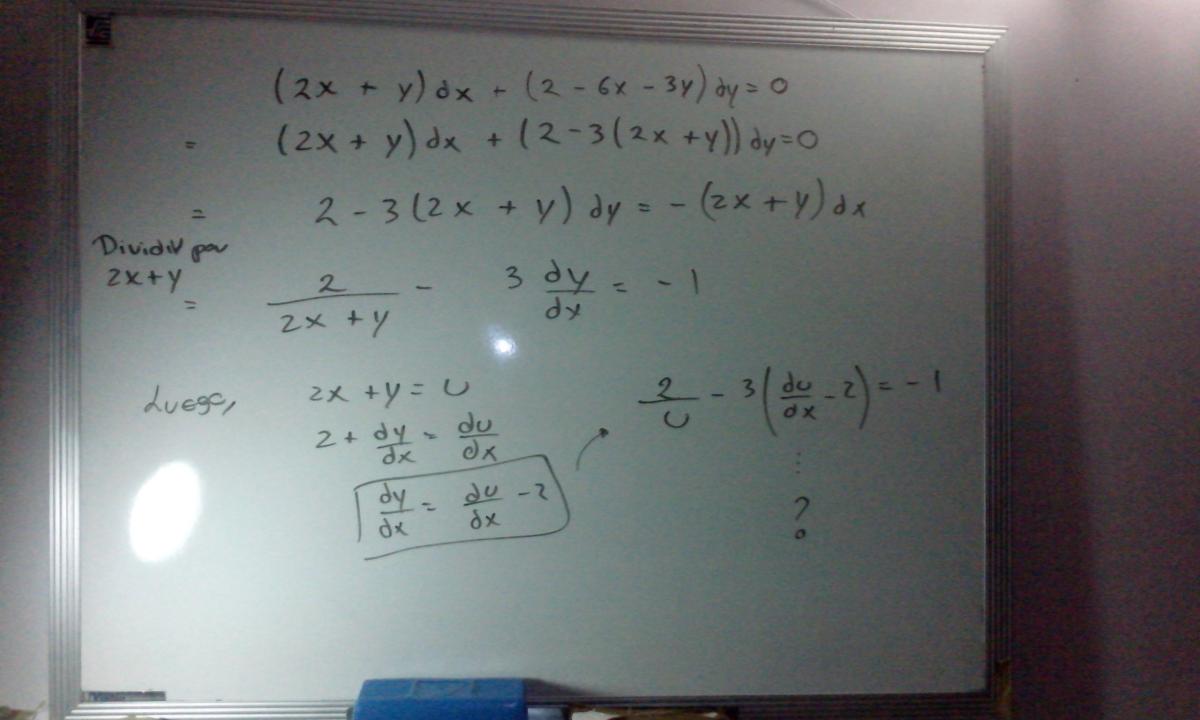 (2x + y) dx + (2 - 6x - 3y) dy = 0
= (2x + y) dx + (2 - 3(2x + y)) dy = 0
= 2 - 3(2x + y) dy = - (2x + y) dx
Dividir por
2x + y
= 2/(2x + y) - 3 dy/dx = - 1
Luego, 2x + y = U
2 + dy/dx = du/dx
dy/dx = du/dx - 2
2/U - 3(du/dx - 2) = - 1
⋮
?